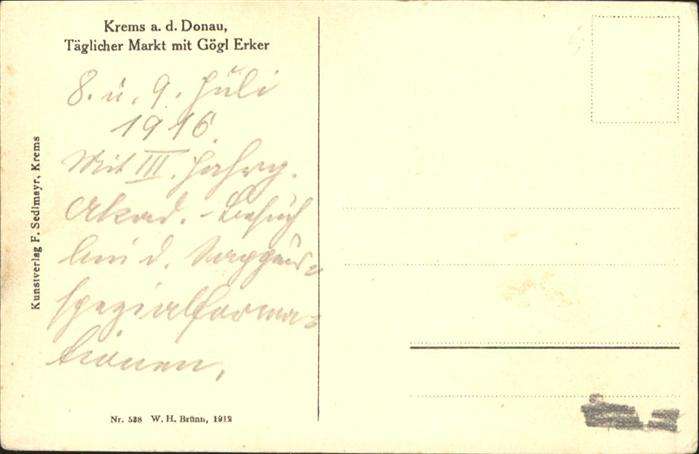 Krems a. d. Donau,
Täglicher Markt mit Gögl Erker
8. u. 9. Juli
1916
Mit III. Jahrg.
Akad. - Besuch
bei d. Sappeur=
spezialforma=
tionen.
Kunstverlag F. Sedlmayr, Krems
Nr. 538 W. H. Brünn, 1912